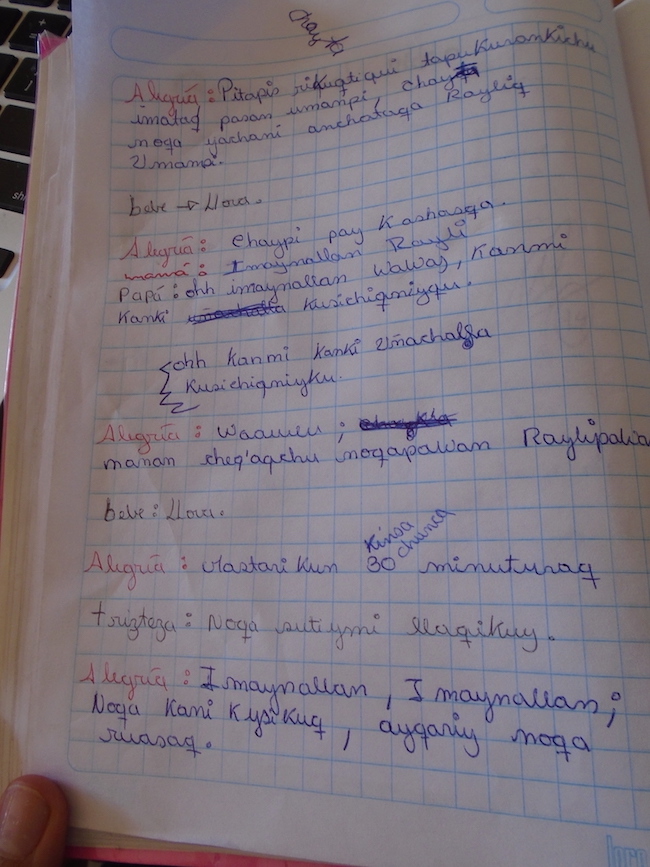 chayta
Alegría: Pitapis rikuqtiqui tapukurankichu
imataq pasan umanpi, chayta
noqa yachani anchataqa Rayliq
Umanpi.
bebe → Llora.
Alegría: Chaypi pay Kashasqa.
mamá: Imaynallan Rayli
Papá: ohh imaynallan wawas, Kanmi
Kanki Kusichiqniyqu.
ohh Kanmi Kanki Umachalla
Kusichiqniyku.
Alegría: Waauuu;
manan cheq'aqchu noqapawan Raylipawa
bebe: Llora.
Kinsa
chunca
Alegría: 30 minuturaq
trizteza: Noqa sutiymi Llaqikuy.
Alegría: Imaynallan, Imaynallan;
Noqa Kani Kusikuq, ayqariy noqa
ruasaq.